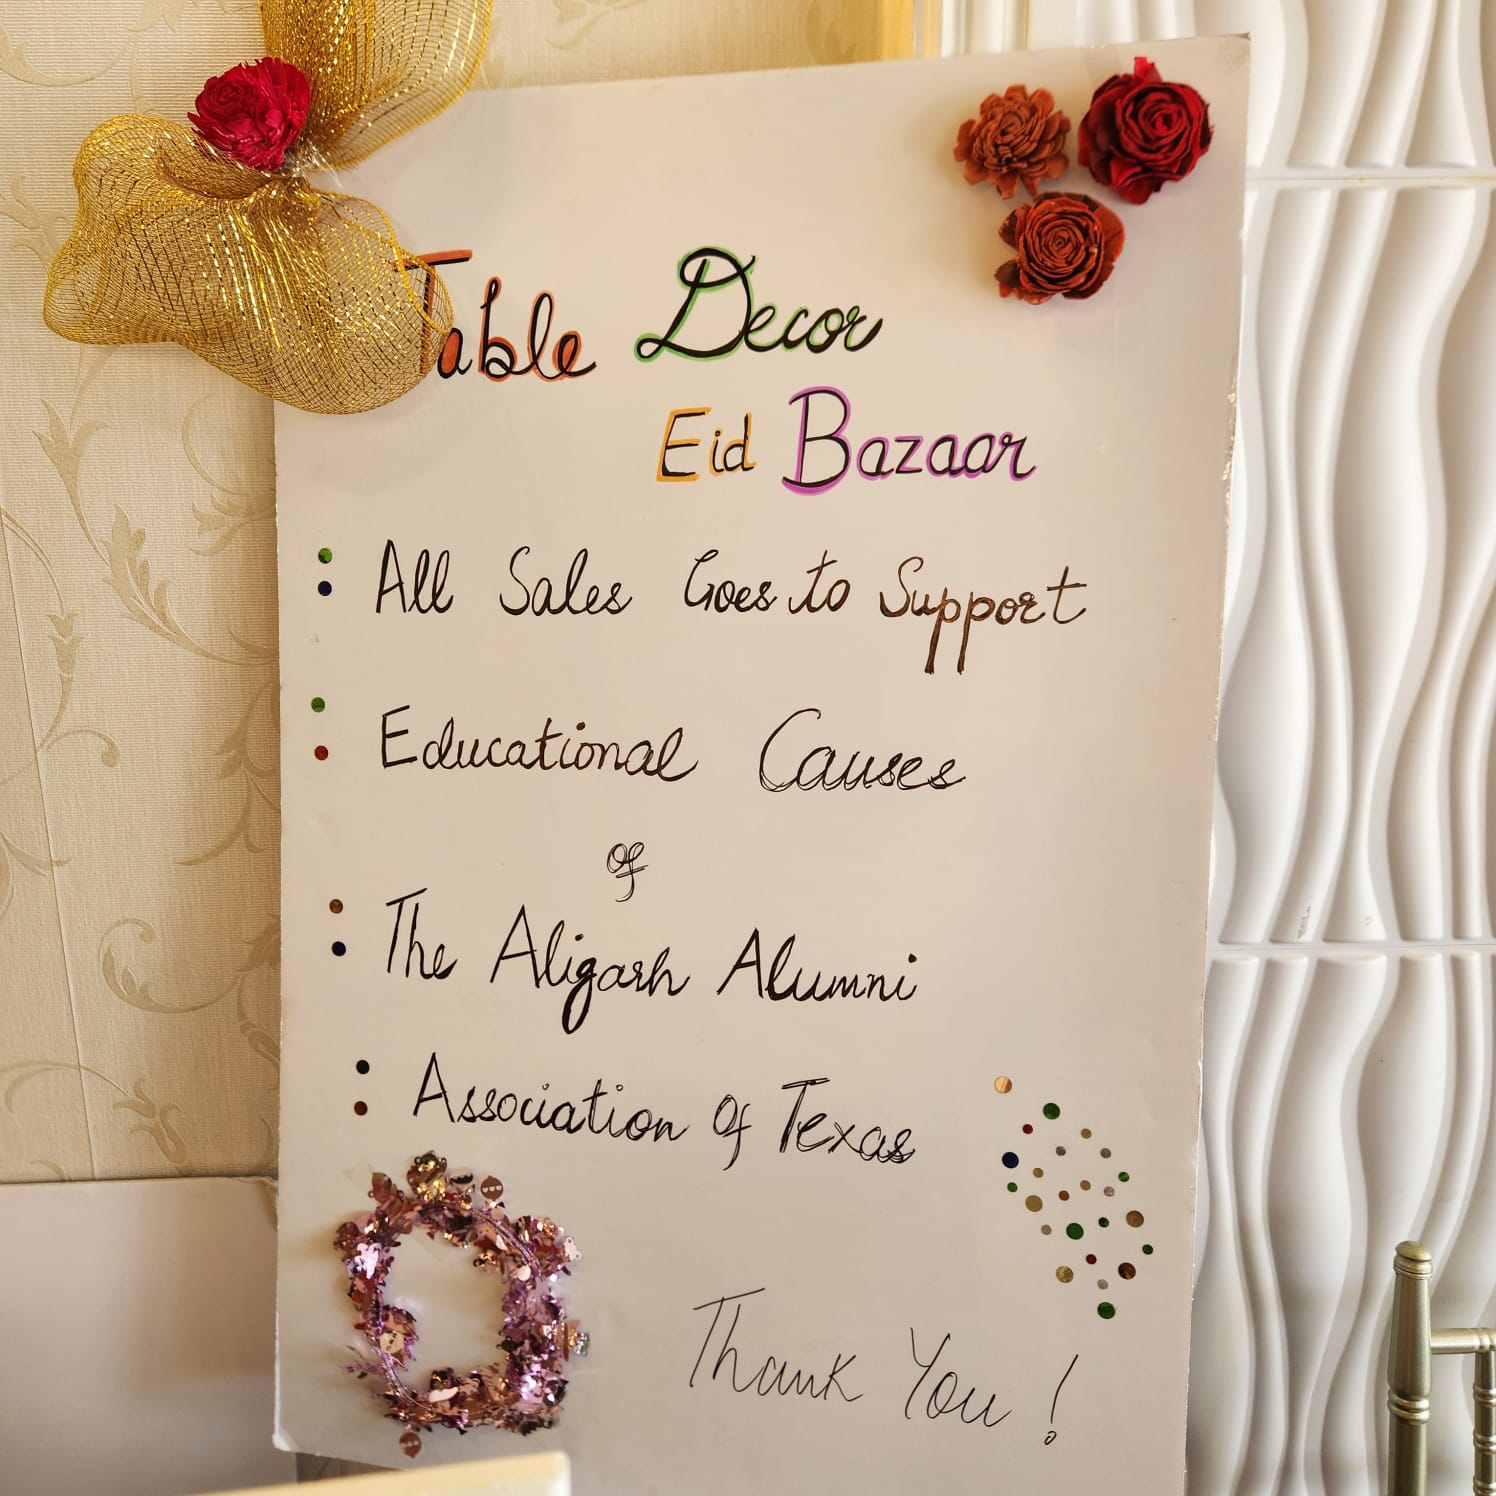 Table Decor
Eid Bazaar
All Sales Goes to Support
Educational Causes
of
The Aligarh Alumni
Association Of Texas
Thank You!